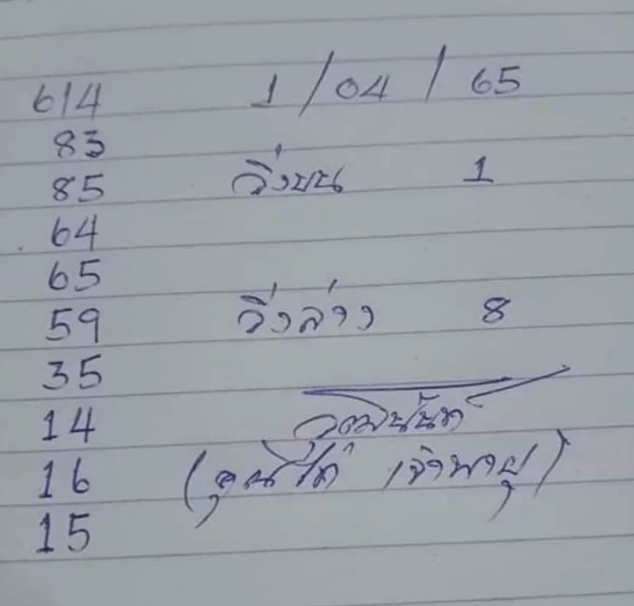 614 1/04/65
83
85 วิ่งบน 1
64
65
59 วิ่งล่าง 8
35
14 วุฒินันท์
16 (คุณไก่ เจ้าพายุ)
15